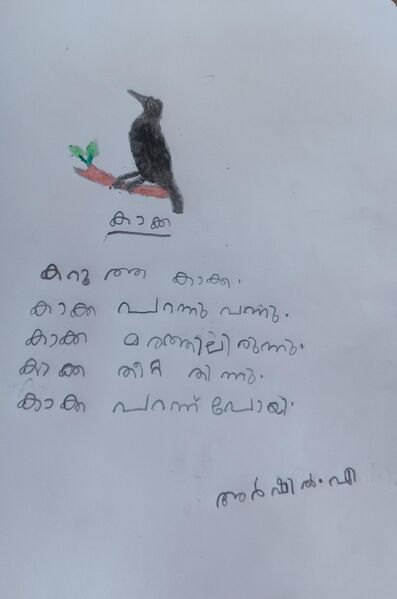 കാക്ക
കറുത്ത കാക്ക.
കാക്ക പറന്നു വന്നു.
കാക്ക മരത്തിലിരുന്നു.
കാക്ക തീറ്റ തിന്നു.
കാക്ക പറന്ന് പോയി.
അർഷിൽ.എ